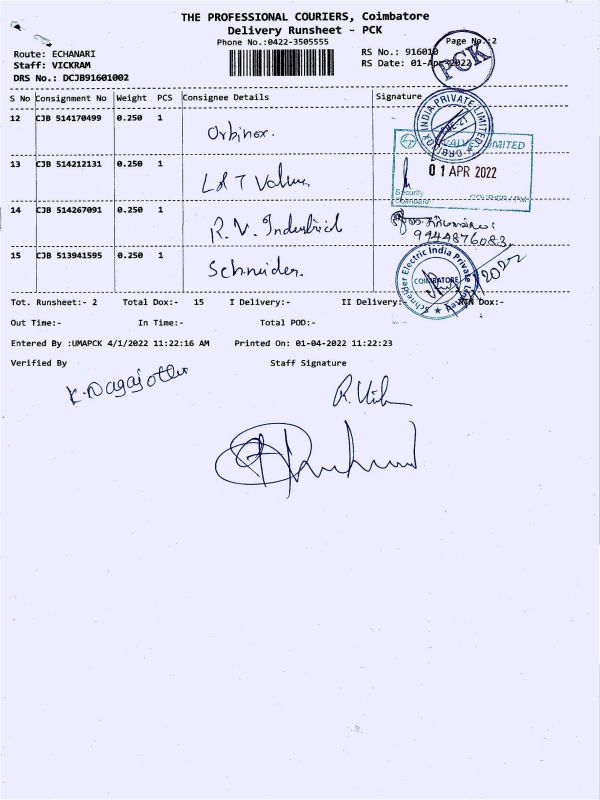 THE PROFESSIONAL COURIERS, Coimbatore
Delivery Runsheet - PCK
Phone No.:0422-3505555
Page No.:2
Route: ECHANARI
RS No.: 916010
Staff: VICKRAM
RS Date: 01-Apr-2022
PCK
DRS No.: DCJB91601002
S No Consignment No Weight PCS Consignee Details Signature
12 CJB 514170499 0.250 1 Orbinox.
ORBINOX INDIA PRIVATE LIMITED
CBE-21
13 CJB 514212131 0.250 1 L&T Valves
VALVES LIMITED
01 APR 2022
Security
14 CJB 514267091 0.250 1 R.V. Industrial
9944876083
15 CJB 513941595 0.250 1 Schneider.
Schneider Electric India Private Limited
COIMBATORE
Tot. Runsheet:- 2 Total Dox:- 15 I Delivery:- II Delivery:- Dox:-
Out Time:- In Time:- Total POD:-
Entered By :UMAPCK 4/1/2022 11:22:16 AM Printed On: 01-04-2022 11:22:23
Verified By Staff Signature